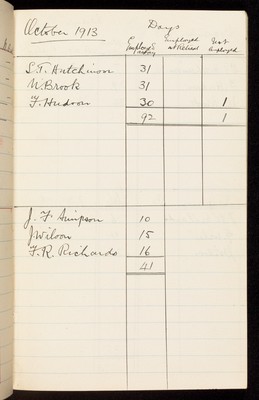 October 1913 Days
Employed Employed at Retired Not Employed
S. T. Hutchinson 31
N. Brook 31
F. Hudson 30 1
92 1
J. F. Simpson 10
J Wilson 15
F. R. Richards 16
41